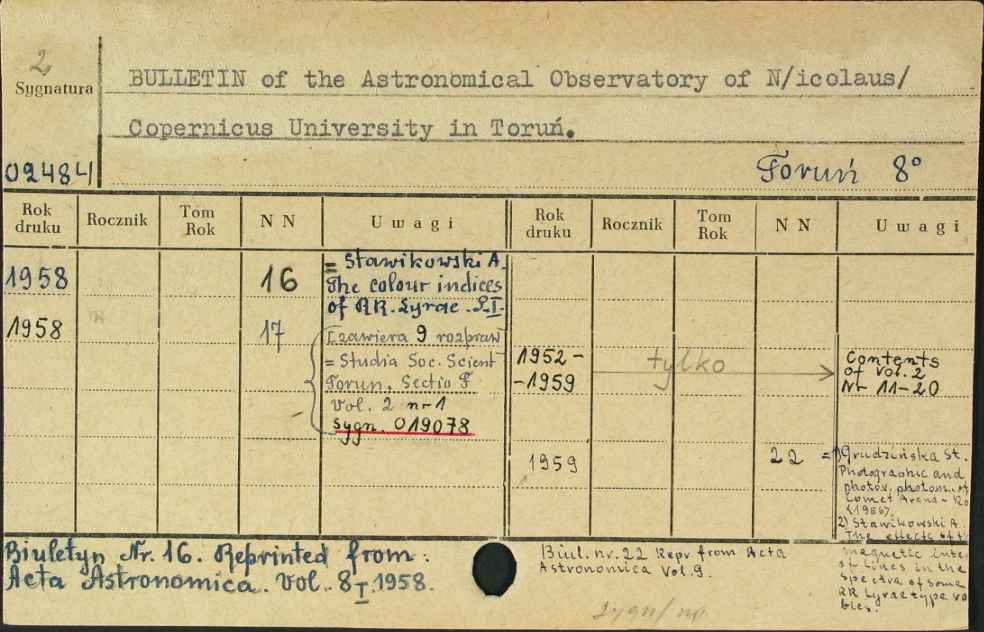 2
Sygnatura
BULLETIN of the Astronomical Observatory of N/icolaus/
Copernicus University in Toruń.
02484
Toruń 8°
Rok druku
Rocznik
Tom Rok
N N
Uwagi
Rok druku
Rocznik
Tom Rok
N N
Uwagi
1958
16
= Stawikowski A.
The colour indices
of RR. Lyrae. P.I.
1958
17
[zawiera 9 rozpraw
= Studia Soc. Scient
Torun. Sectio F
Vol. 2 nr 1
sygn. 019078
1952 -
- 1959
tylko
Contents
of Vol. 2
Nr 11-20
1959
22
= 1) Grudzińska St.
Photographic and
photov. photom. of
Comet Arend - Ro
(1956).
2) Stawikowski A.
The effects of th
magnetic inte
of lines in the
spectra of some
RR Lyrae type va
bles.
Biuletyn Nr. 16. Reprinted from:
Acta Astronomica. Vol. 8 I 1958.
Biul. nr. 22 Repr. from Acta
Astronomica Vol. 9.